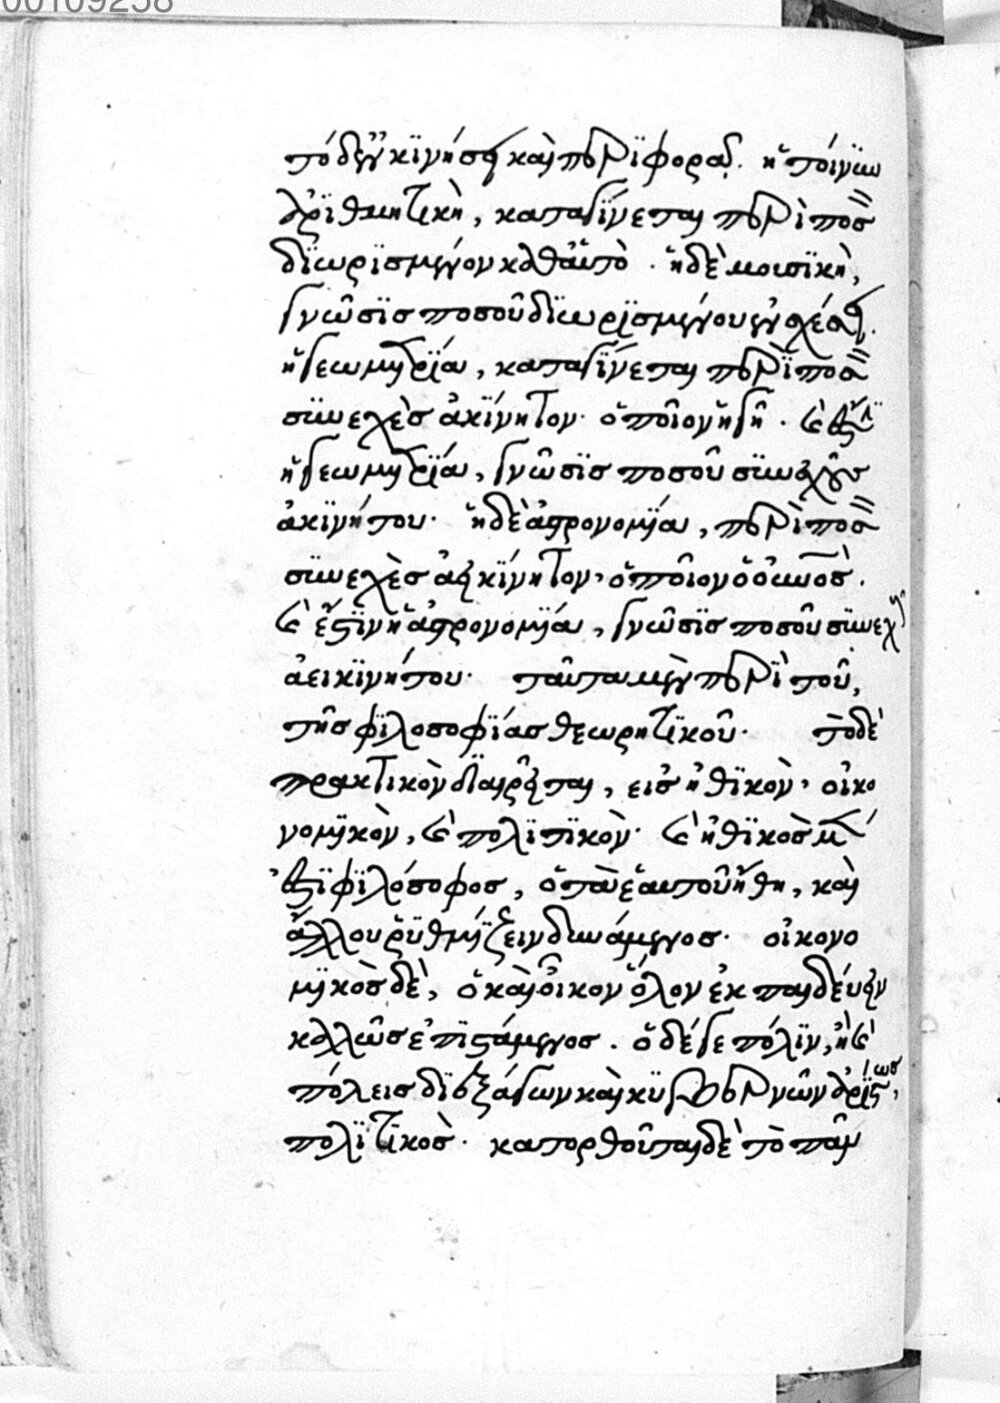 00109258
πὸ δὲ ἐν κϊνήσει καὶ περϊφορᾷ. ἡ τοίνυν
ἀρϊθμητϊκὴ, καταγίνεται περὶ ποσὸν
δϊωρϊσμένον καθ' αὑτὸ. ἡ δὲ μουσϊκὴ,
γνῶσϊς ποσοῦ δϊωρϊσμένου ἐν σχέσει.
ἡ γεωμετρϊα, καταγίνεται περὶ ποσὸν
συνεχὲς ἀκϊνητον. ὁποῖον ἡ γῆ. καὶ ἔστϊν
ἡ γεωμετρϊα, γνῶσϊς ποσοῦ συνεχοῦς
ἀκϊνήτου. ἡ δὲ ἀστρονομϊα, περὶ ποσὸν
συνεχὲς ἀεικϊνητον, ὁποῖον ὁ οὐρανός.
καὶ ἔστϊν ἡ ἀστρονομϊα, γνῶσϊς ποσοῦ συνεχοῦς
ἀεικϊνήτου. ταῦτα μὲν περὶ τοῦ,
τῆς φϊλοσοφϊας θεωρητϊκοῦ. τὸ δὲ
πρακτϊκὸν δϊαιρεῖται, εἰς ἠθϊκὸν, οἰκο
νομϊκὸν, καὶ πολϊτϊκὸν. καὶ ἠθϊκὸς μέν
ἐστϊ φϊλόσοφος, ὁ τὰ ἑαυτοῦ ἤθη, καὶ
ἄλλου ῥυθμϊζειν δυνάμενος. οἰκονο
μϊκὸς δὲ, ὁ καὶ οἶκον ὅλον ἐκπαιδεύειν
καλλῶς ἐπϊστάμενος. ὁ δέ γε πόλϊν, ἢ καὶ
πόλεις δϊεξάγων καὶ κυβερνῶν ἀρϊστως,
πολϊτϊκός. κατορθοῦται δὲ τὸ πᾶν